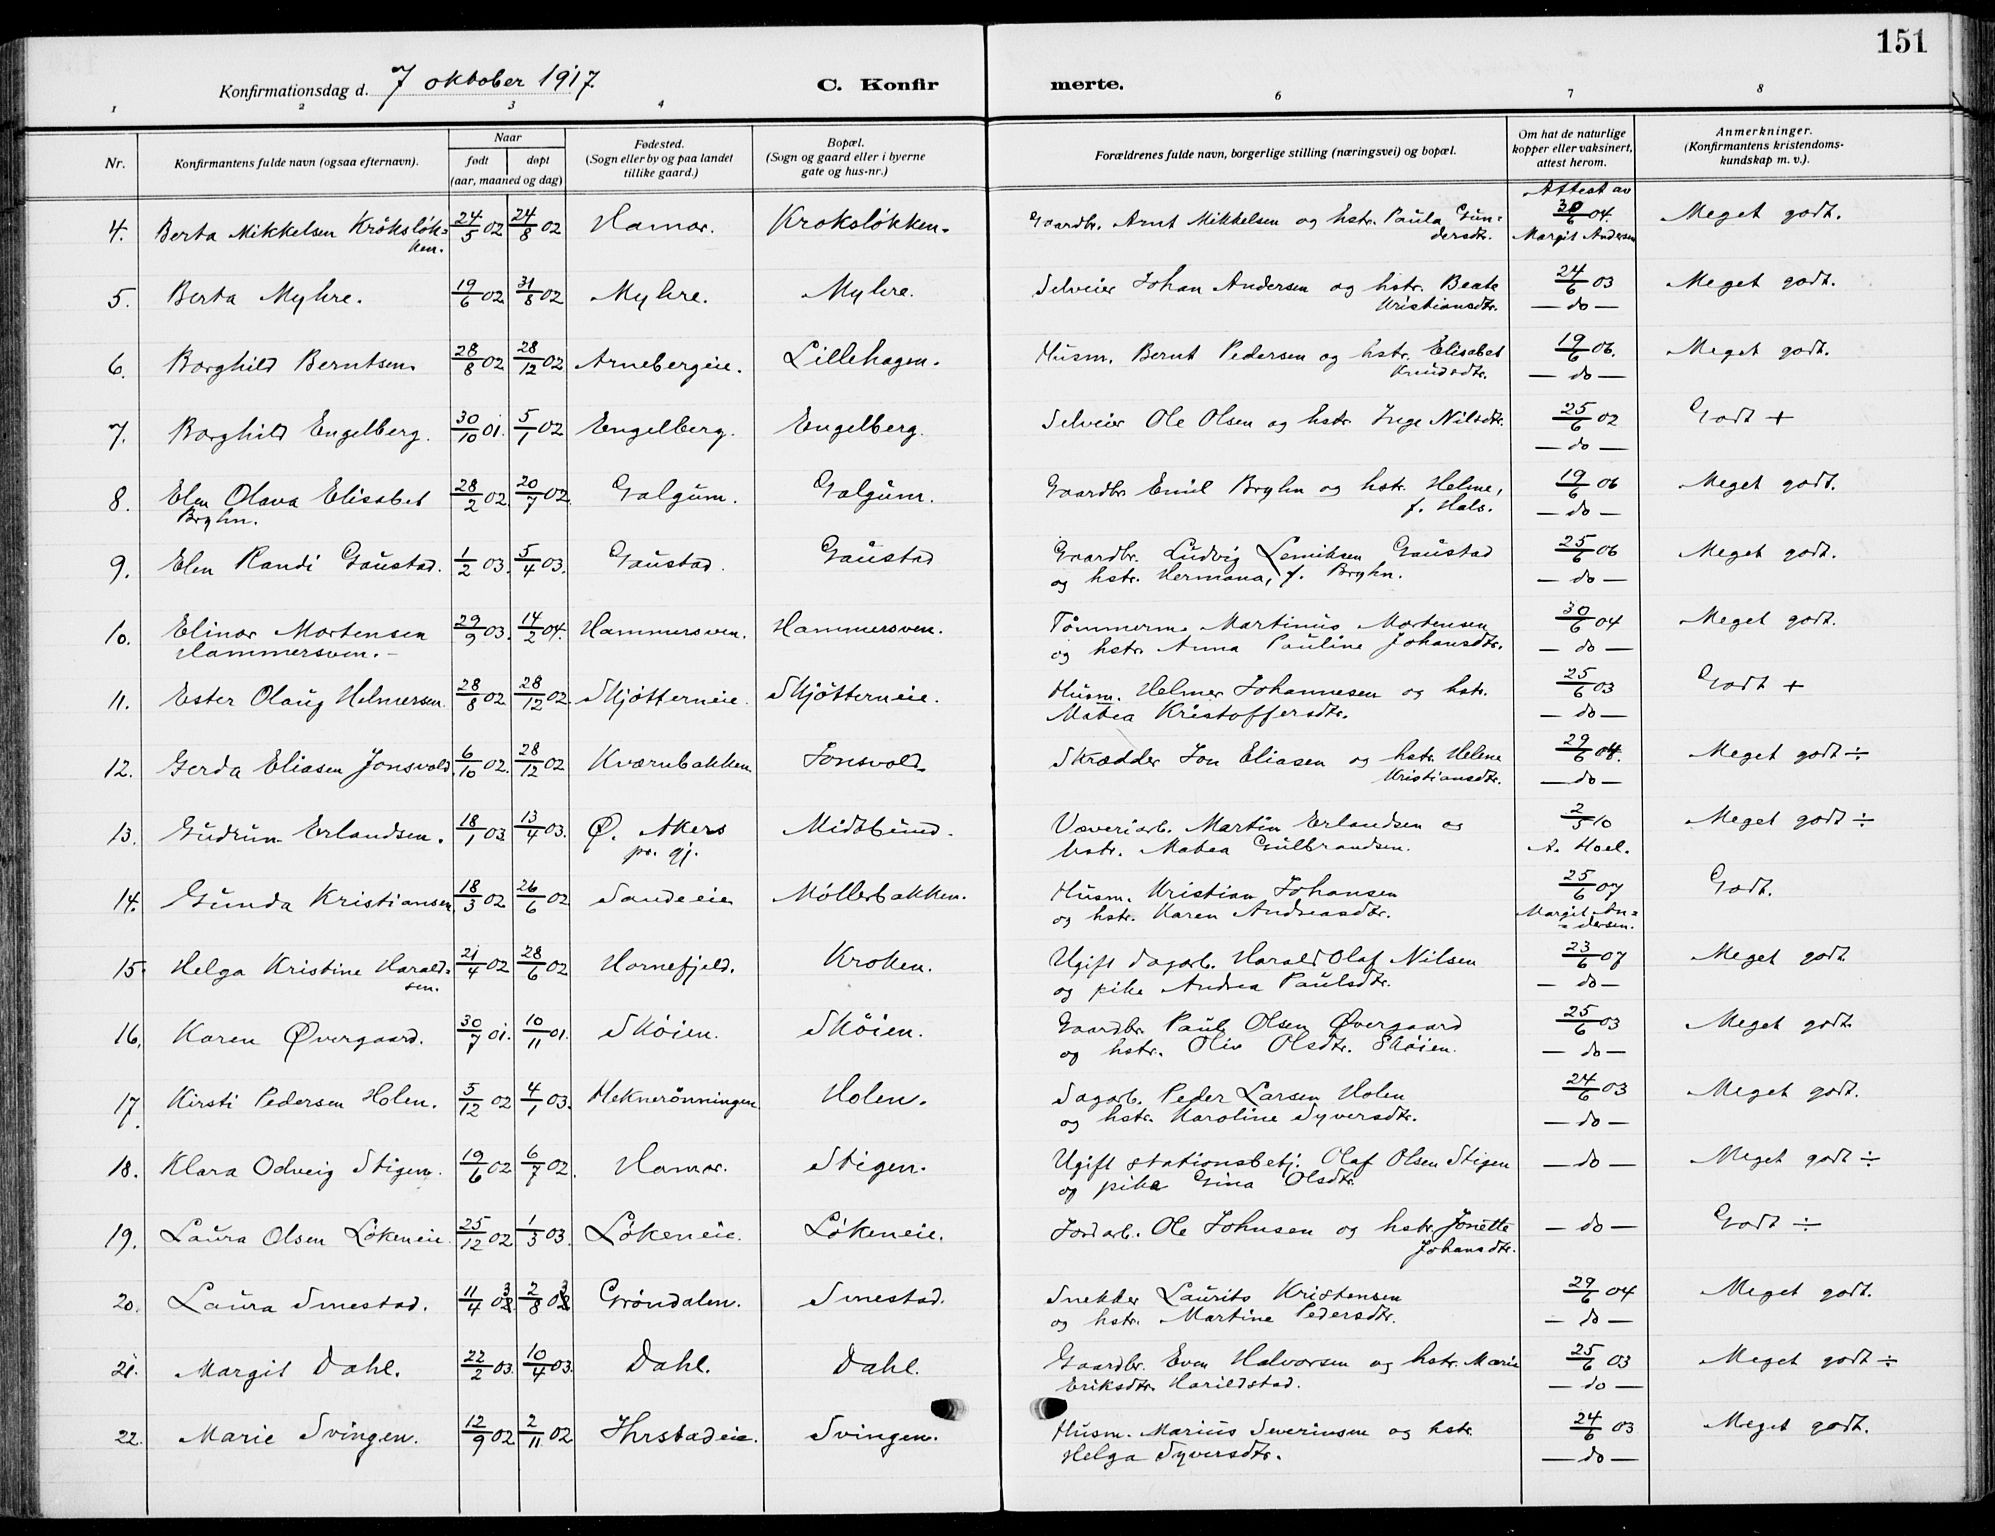 151
Konfirmationsdag d. 7 oktober 1917. C. Konfir merte.
1 2 3 4 5 6 7 8
Nr. Konfirmantens fulde navn (ogsaa efternavn). Naar født døpt (aar, maaned og dag) Fødested. (Sogn eller by og paa landet tillike gaard.) Bopæl. (Sogn og gaard eller i byerne gate og hus-nr.) Forældrenes fulde navn, borgerlige stilling (næringsvei) og bopæl. Om hat de naturlige kopper eller vaksinert, attest herom. Anmerkninger. (Konfirmantens kristendoms-kundskap m. v.).
Attest av
4. Berta Mikkelsen Krøksløk= 24/5 02 24/8 02 Hamar. Kroksløkken. Gaardbr. Arnt Mikkelsen og hstr. Paula Gun= 30/6 04. Meget godt.
ken. dersdtr. Margit Andersen
5. Berta Myhre. 19/6 02 31/8 02 Myhre. Myhre. Selveier Johan Andersen og hstr. Beate 24/6 03 Meget godt.
Kristiansdtr. — do —
6. Borghild Berntsen. 28/8 02 28/12 02 Arnebergeie. Lillehagen. Husm. Bernt Pedersen og hstr. Elisabet 19/6 06. Meget godt.
Knudsdtr. — do —
7. Borghild Engelberg. 30/10 01. 5/1 02 Engelberg. Engelberg. Selveier Ole Olsen og hstr. Inge Nilsdtr. 25/6 02 Godt +
— do —
8. Elen Olava Elisabet 28/2 02. 20/7 02. Galgum. Galgum. Gaardbr. Emil Bryhn og hstr. Helme, 19/6 06 Meget godt.
Bryhn. f. Hals. — do —
9. Elen Randi Gaustad. 1/2 03. 5/4 03. Gaustad. Gaustad Gaardbr. Ludvig Lemiksen Gaustad 25/6 06 Meget godt.
og hstr. Hermana, f. Bryhn. — do —
10. Elinor Mortensen 29/9 03. 14/2 04. Hammersven. Hammersven. Tømmerm. Martinus Mortensen 30/6 04 Meget godt.
Hammersven. – og hstr. Anna Pauline Johansdtr. — do —
11. Ester Olaug Helmersen. 28/8 02 28/12 02. Skjøtterneie. Skjøtterneie. Husm. Helmer Johannesen og hstr. 25/6 03 Godt +
Matea Kristoffersdtr. — do —
12. Gerda Eliasen Jonsvold. 6/10 02. 28/12 02 Kværnbakken. Jonsvold. Skrædder Jon Eliasen og hstr. Helene 29/6 04. Meget godt ÷
Kristiansdtr. — do —
13. Gudrun Erlandsen. 18/1 03 13/4 03. Ø. Akers Midtbund. Væveriarb. Martin Erlandsen og 2/5 10 Meget godt ÷
pr. gj. hstr. Matea Gulbrandsen. A. Hoel.
14. Gunda Kristiansen. 18/3 02 26/6 02 Sandeeie Møllerbakken. Husm. Kristian Johansen 25/6 07 Godt.
og hstr. Karen Andreasdtr. Margit An=
=dersen.
15. Helga Kristine Harald= 21/4 02 28/6 02 Hornefjeld. Kroken. Ugift dagarb. Harald Olaf Nilsen 23/6 07 Meget godt
sen. og pike Andrea Paulsdtr. — do —
16. Karen Øvergaard. 30/7 01. 10/11 01. Skøien. Skøien. Gaardbr. Paul Olsen Øvergaard 25/6 03 Meget godt.
og hstr. Oliv Olsdtr. Skøien. — do —
17. Kirsti Pedersen Holen. 5/12 02 4/1 03. Heknerønningen. Holen. Dagarb. Peder Larsen Holen 24/6 03 Meget godt.
og hstr. Karoline Syversdtr. — do —
18. Klara Odveig Stigen. 19/6 02 6/7 02. Hamar. Stigen. Ugift stationsbetj. Olaf Olsen Stigen — do — Meget godt ÷
og pike Gina Olsdtr.
19. Laura Olsen Løkeneie. 25/12 02 1/3 03. Løkeneie. Løkeneie. Jordarb. Ole Johnsen og hstr. Jonette — do — Godt ÷
Johansdtr.
20. Laura Smestad. 11/4 03 2/8 03 Grøndalen. Smestad. Snekker Laurits Kristensen 29/6 04 Meget godt.
og hstr. Martine Pedersdtr. — do —
21. Margit Dahl. 22/2 03. 10/4 03. Dahl. Dahl. Gaardbr. Even Halvorsen og hstr. Marie 25/6 03 Meget godt ÷
Eriksdtr. Harildstad. — do —
22. Marie Svingen. 12/9 02 2/11 02 Ihrstadeie. Svingen. Husm. Marius Severinsen og hstr. 24/6 03 Meget godt.
Helga Syversdtr. — do —